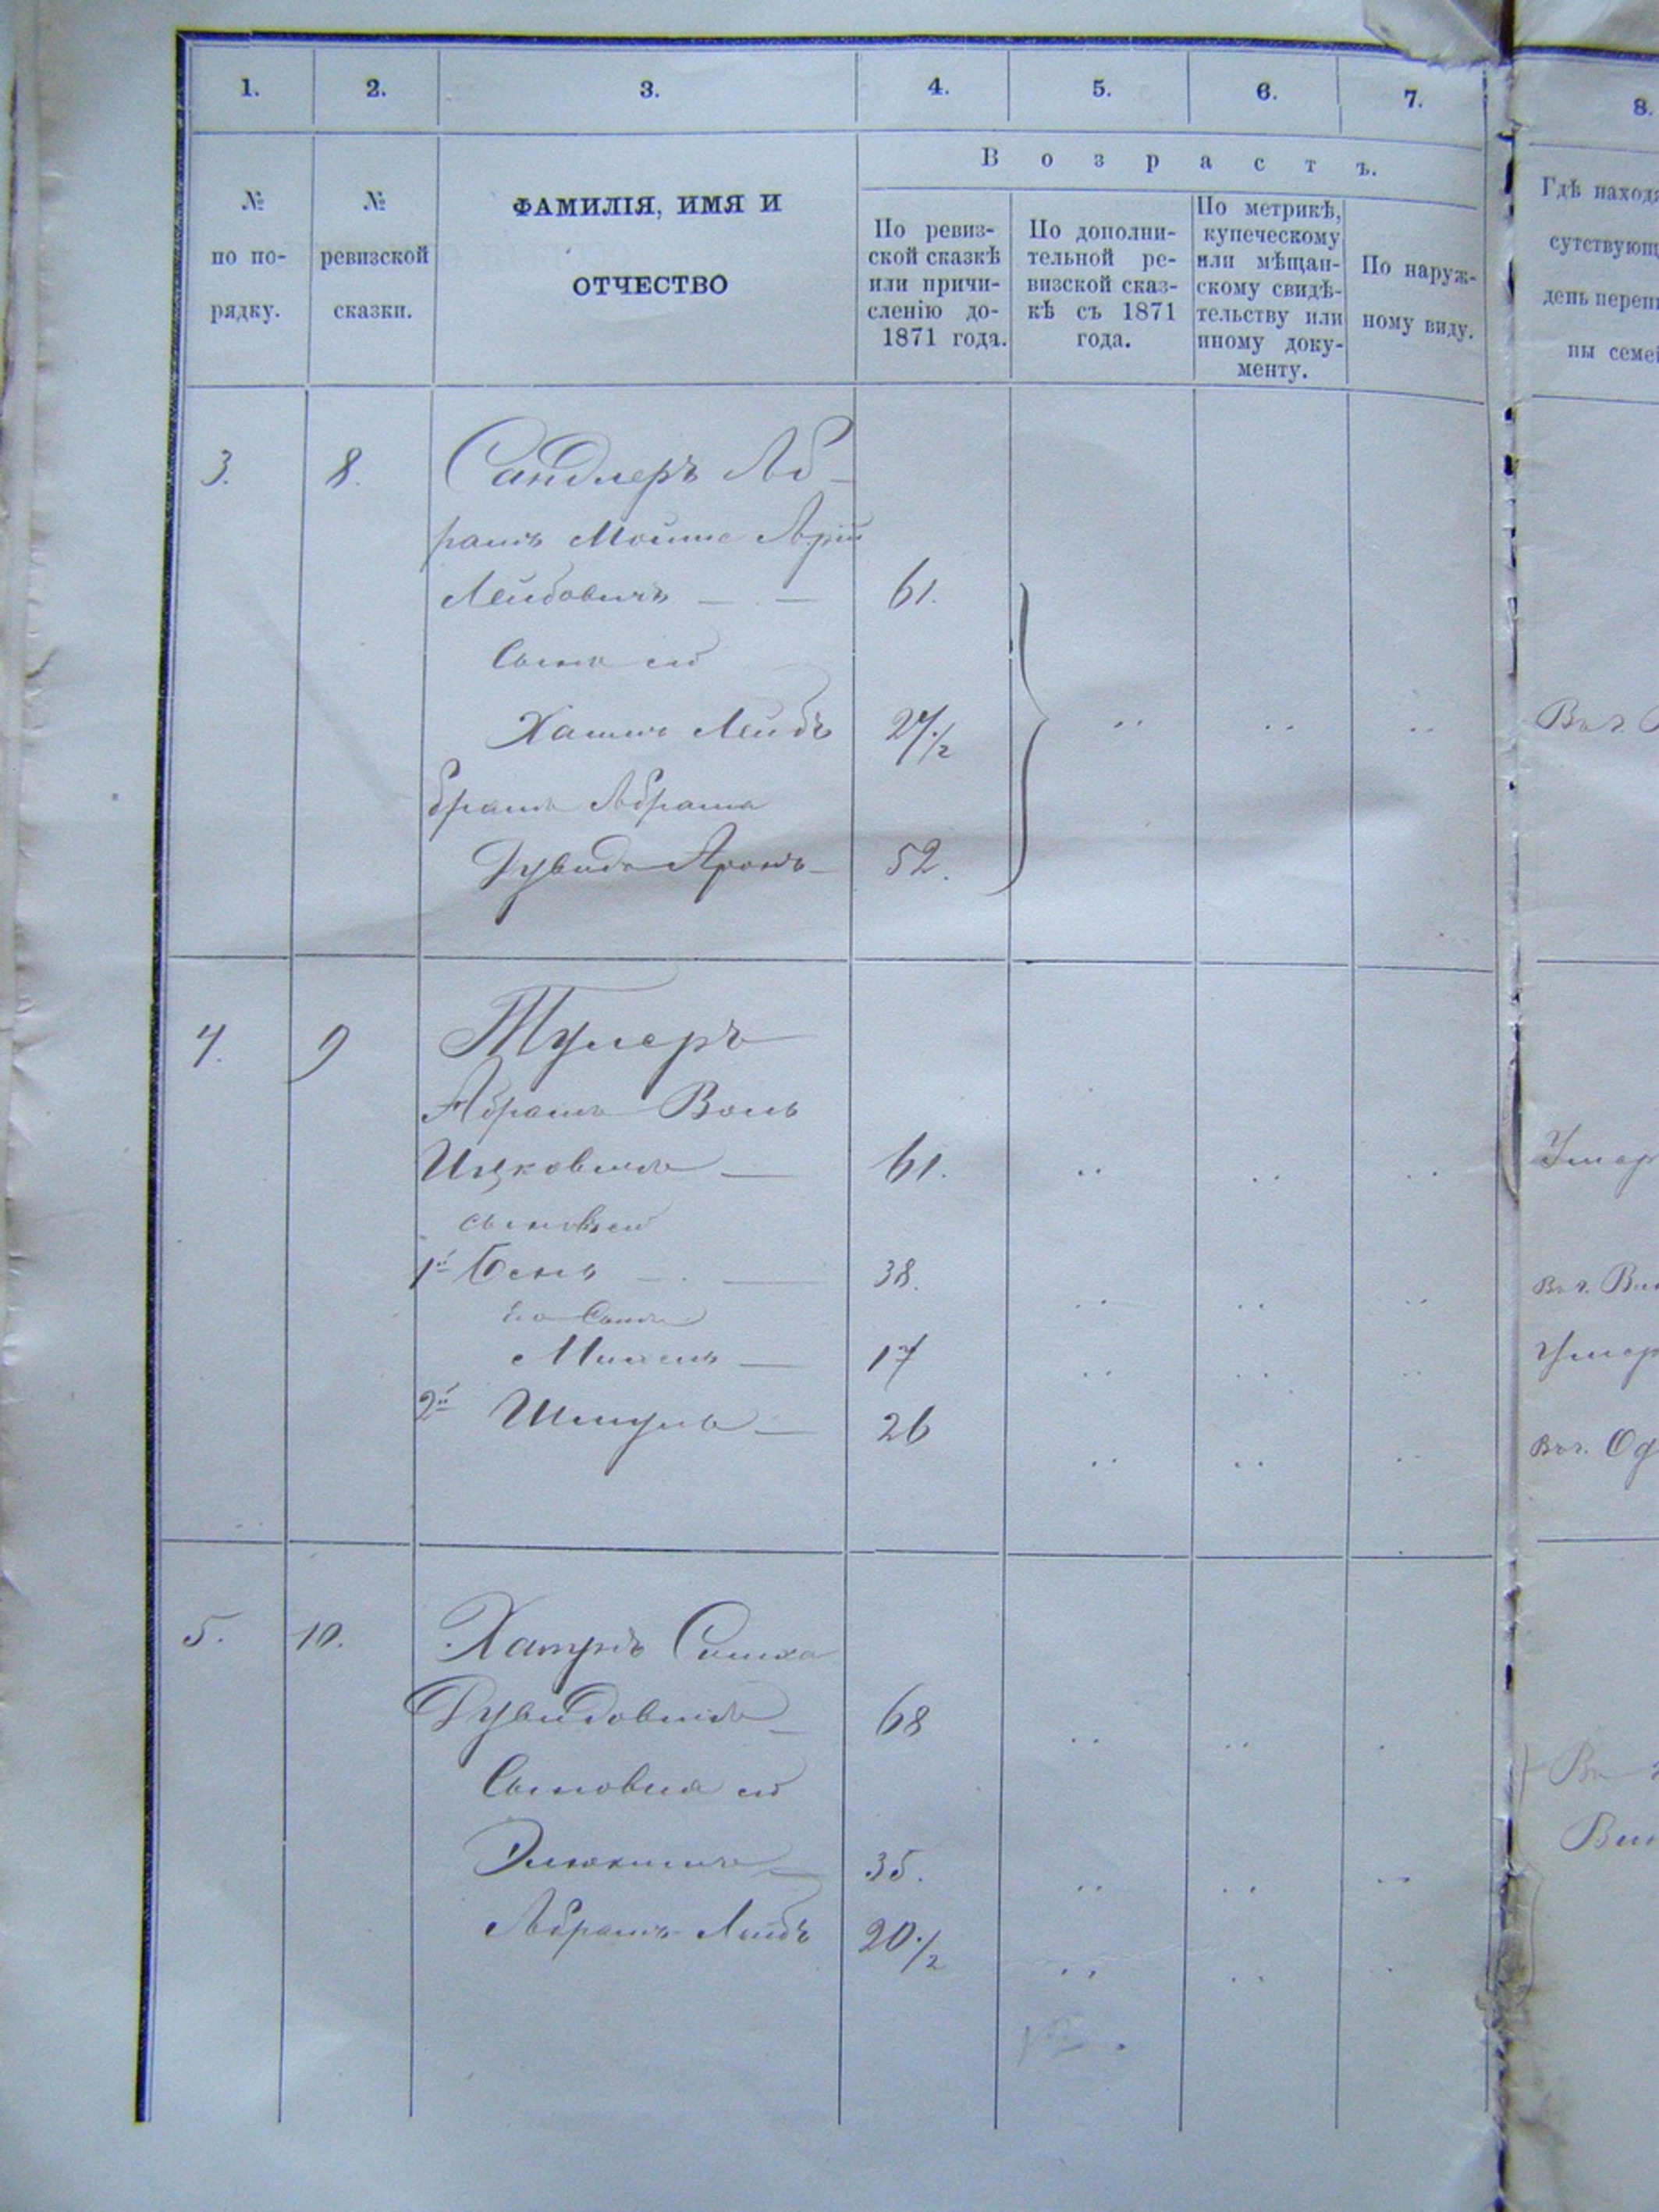 1. 2. 3. 4. 5. 6. 7. 8.
№ по по-рядку.
№ ревизской сказки.
ФАМИЛІЯ, ИМЯ И
ОТЧЕСТВО
Возрастъ.
По ревиз-
ской сказкѣ
или причи-
сленію до-
1871 года.
По дополни-
тельной ре-
визской сказ-
кѣ съ 1871
года.
По метрикѣ,
купеческому
или мѣщан-
скому свидѣ-
тельству или
иному доку-
менту.
По наруж-
ному виду.
Гдѣ наход
сутствующ
день переп
ны семе
3. 8. Сандлеръ Аб-
рамъ Мошко Арій
Лейбовичъ — — 61.
Сынъ его
Хаимъ Лейбъ 27 1/2
братъ Абрама
Дувидъ Аронъ — 52.
4. 9 Тулеръ
Абрамъ Воль
Ицковичъ — 61.
сыновья его
1й Бень — 38.
Его Сынъ
Михель — 17
2й Шмуль — 26
Умер
Умер
5. 10. Хатръ Симха
Дувидовичъ — 68
Сыновья его
Элюкимъ — 35.
Абрамъ Лейбъ 20 1/2